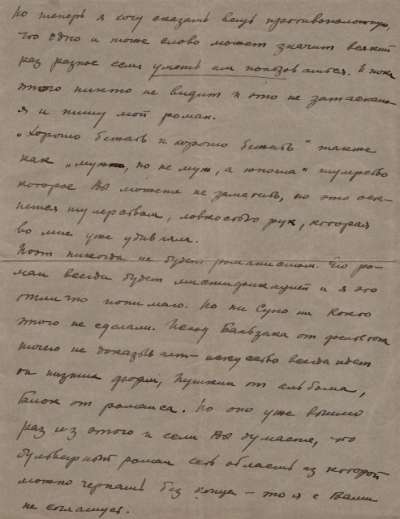 Но теперь я хочу сказать вещь противоположную,
что одно и тоже слово может значить всякий
раз разное если уметь им пользоваться. И пока
этого никто не видит и это не затаскано
я и пишу мой роман.
„Хорошо бежать и хорошо бежать" также
как „муж, но не муж, а юноша" шулерство
которое Вы можете не заметить, но это
шулерством, ловкостью рук, которая
во мне уже убивали.
Поэт никогда не будет романистом. Его ро-
ман всегда будет мистификацией и я это
отлично понимаю. Но ни Сую ни Кокто
этого не сделали. Исход Бальзака от фельетона
ничего не доказывает - искусство всегда идет
от низших форм, Пушкин от альбома,
Блок от романса. Но оно уже вышло
раз из этого и если Вы думаете, что
бульварный роман есть область из которой
можно черпать без конца - то я с Вами
не соглашусь.